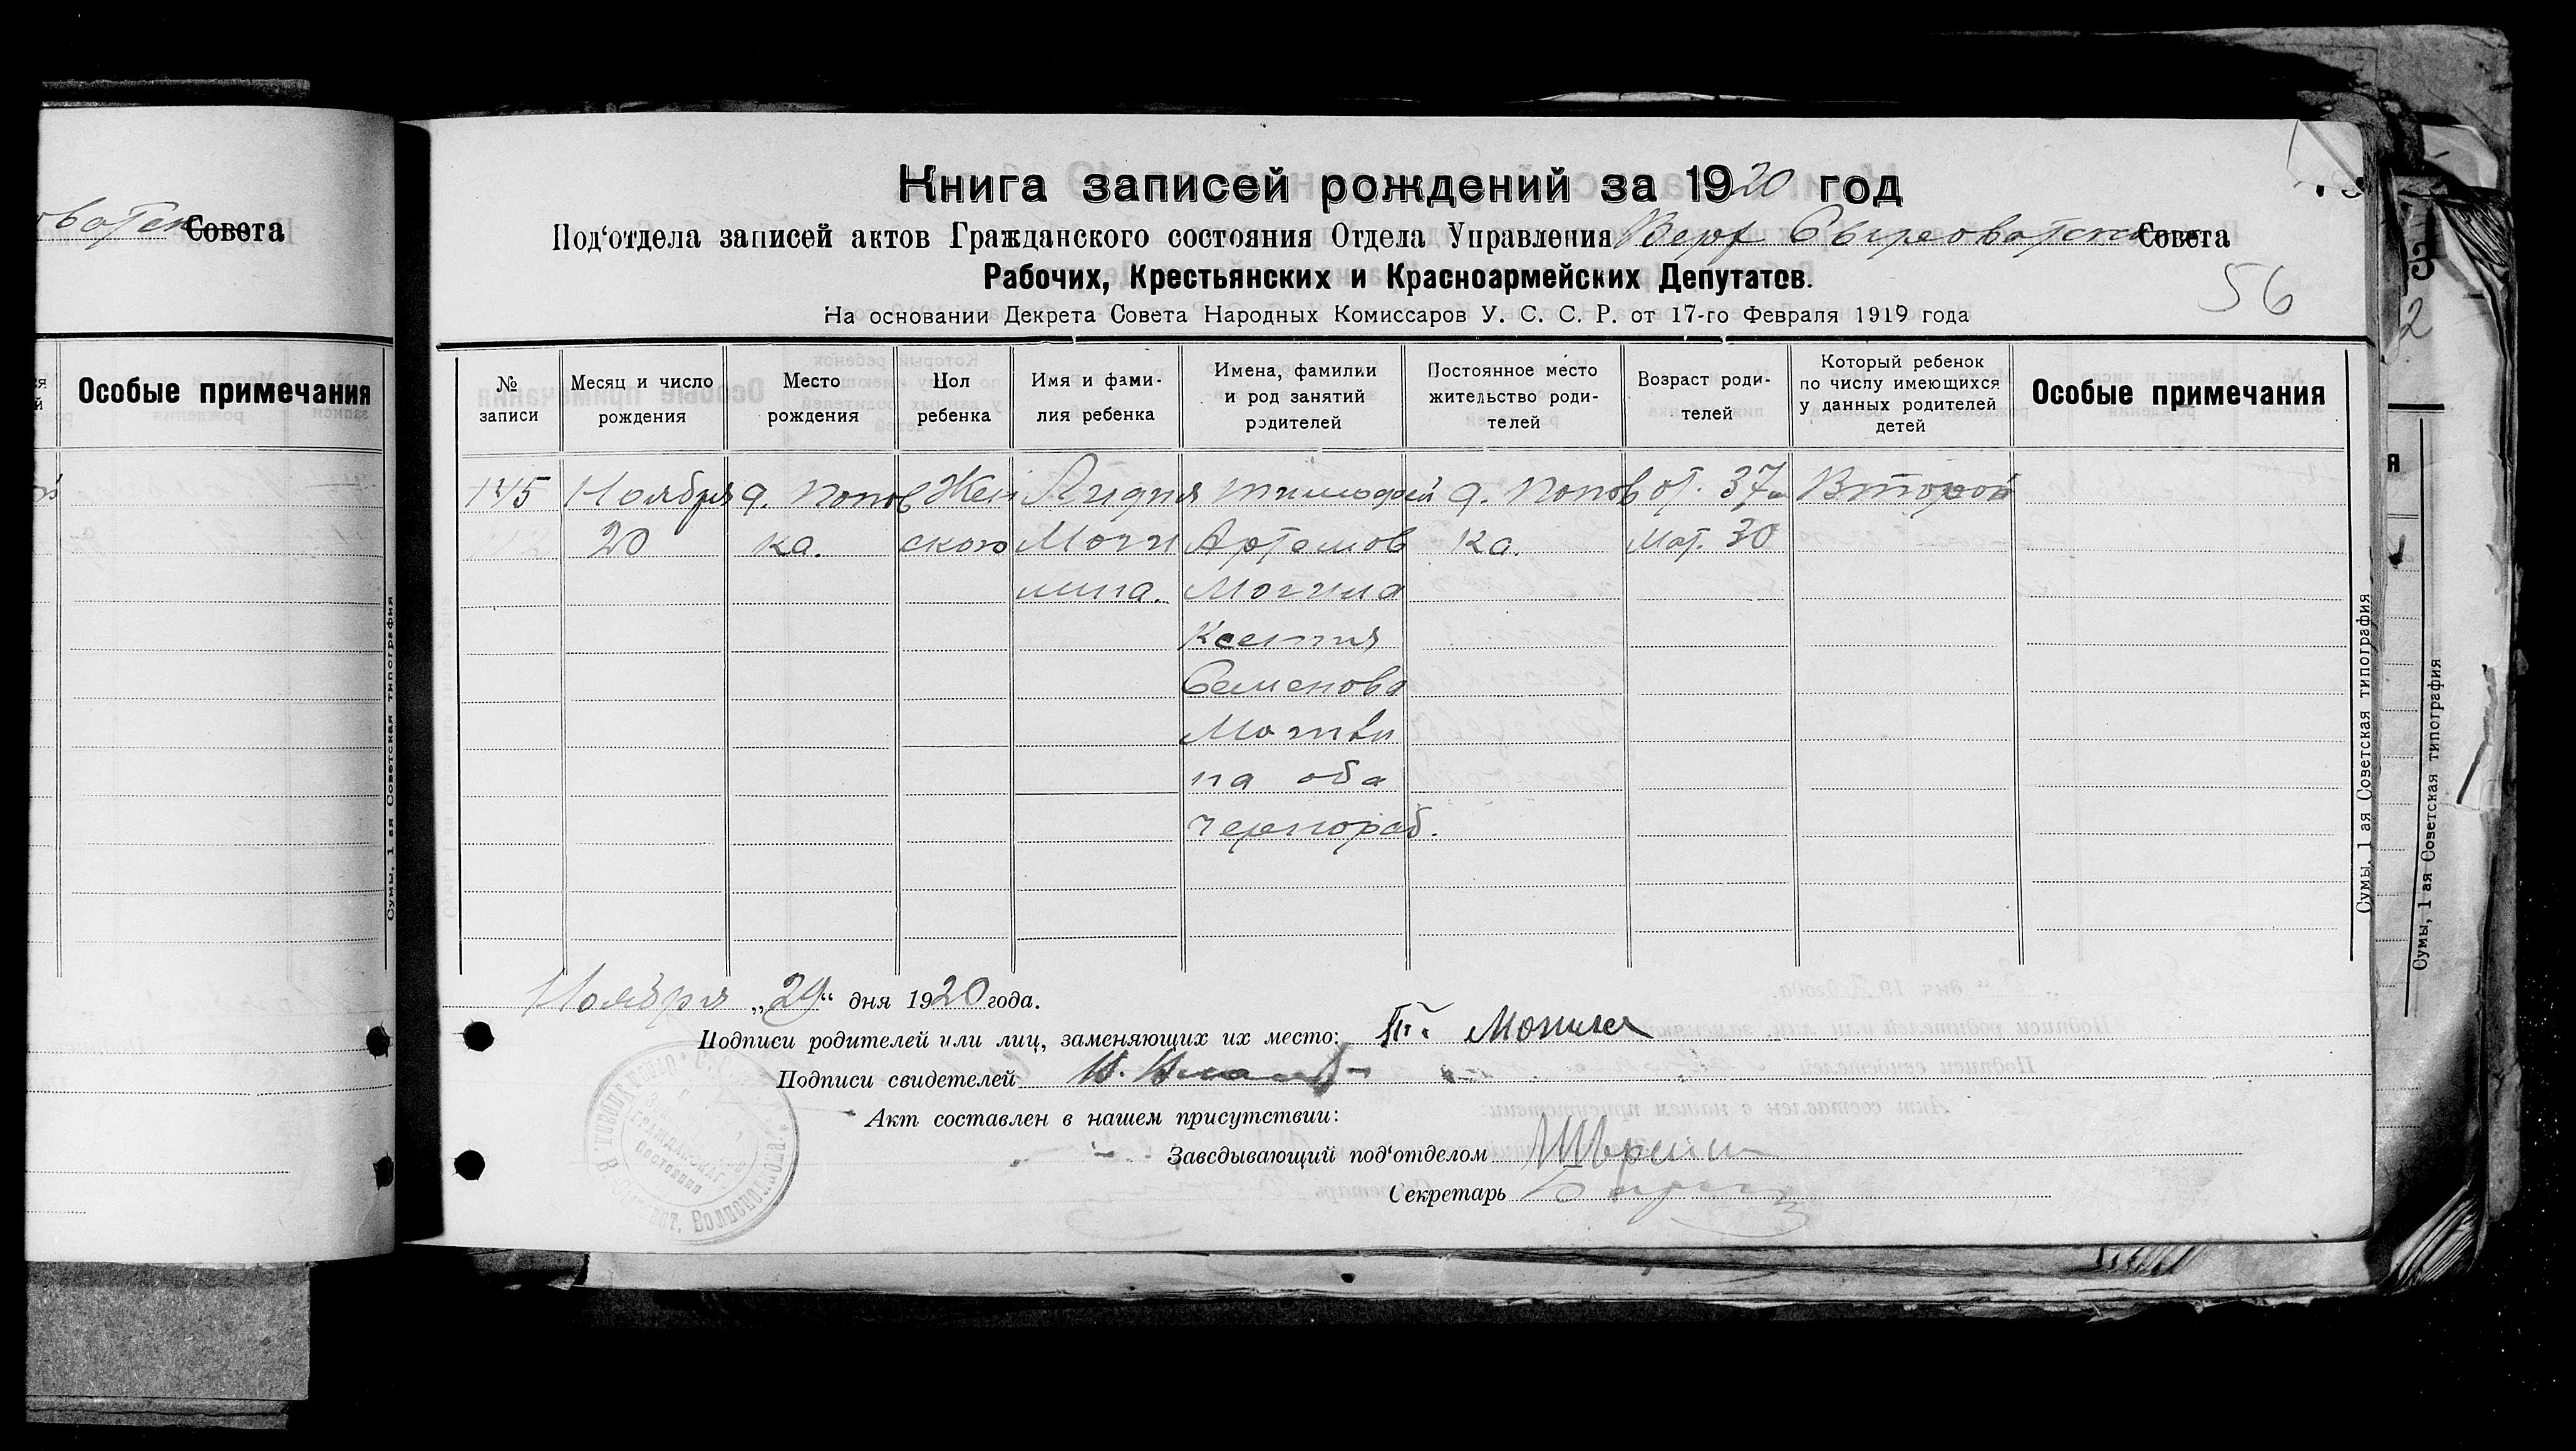 Совета
Особые примечания
Сумы, 1 ая Советская типография
Книга записей рождений за 1920 год
Под‘отдела записей актов Гражданского состояния Отдела Управления Верх Сыроватск Совета
Рабочих, Крестьянских и Красноармейских Депутатов.
56
На основании Декрета Совета Народных Комиссаров У. С. С. Р. от 17-го Февраля 1919 года
№ записи
Месяц и число рождения
Место рождения
Пол ребенка
Имя и фами-
лия ребенка
Имена, фамилии
и род занятий
родителей
Постоянное место
жительство роди-
телей
Возраст роди-
телей
Который ребенок
по числу имеющихся
у данных родителей
детей
Особые примечания
145 Ноября д. Попов Жен Лидия Тимофей д. Попов от. 37 Второй
20 ка. ского Моги Артемов ка. Мат. 30
лина. Могила
Ксения
Семенова
Могили
на оба
чернораб.
Ноября „29“ дня 1920 года.
Подписи родителей или лиц, заменяющих их место: Т. Могила
Подписи свидетелей
Акт составлен в нашем присутствии:
Заведывающий под‘отделом
Секретарь
Гражданск.
Состояния
Сумы, 1 ая Советская типография
3
2
я
Сумы, 1 ая Советская типография